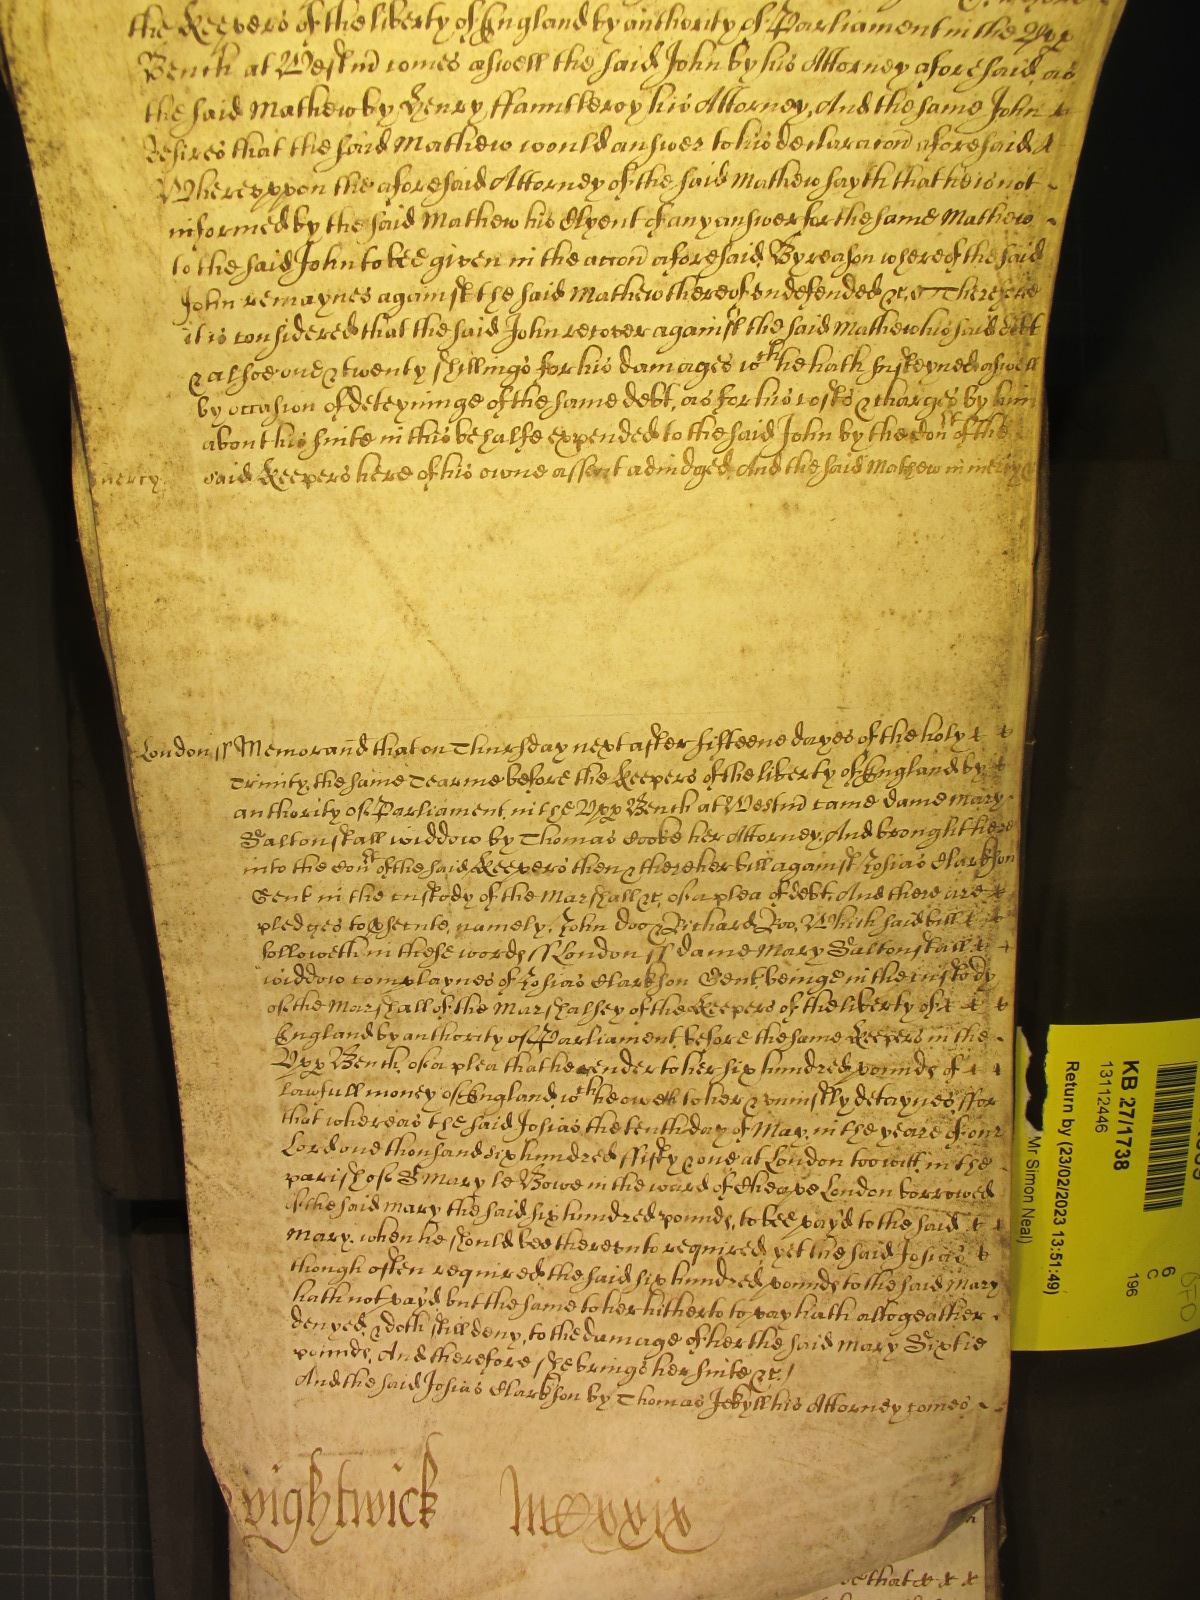 the Keepers of the liberty of England by authority of Parliament in the Upp
Bench at Westm̃ comes aswell the said John by his Attorney aforesaid as
the said Mathew by Henry ffauntleroy his Attorney, And the same John
desires that the said Mathew would answer to his declaracon aforesaid
Whereuppon the aforesaid Attorney of the said Mathew sayth that he is not
informed by the said Mathew his Clyent of any answer for the same Mathew
to the said John to bee given in the accon aforesaid. By reason whereof the said
John remaynes against the said Mathew thereof undefended &c. Therefore
it is considered that the said John recover against the said Mathew his said debt
& alsoe one & twenty shillings for his damages wch he hath susteyned aswell
by occasion of deteyninge of the same debt, as for his costs & charges by him
about his suite in this behalfe expended to the said John by the Court of the
mercy said Keepers here of his owne assent adiudged. And the said Mathew in mercy &c
London ss Memorand that on Thursday next after fifteene dayes of the holy
Trinity, the same Tearme before the Keepers of the liberty of England by
authority of Parliament, in the Upp Bench at Westm̃ came dame Mary
Saltonstall widdow by Thomas Cooke her Attorney, And brought here
into the Court of the said Keepers then & there her bill against Josias Clarkson
Gent in the custody of the Marshall &c. of a plea of debt. And there are
pledges to psecute, namely, John Doo & Richard Roo, Which said bill
followeth in these words ss London ss dame Mary Saltonstall
widdow complaynes of Josias Clarkson Gent beinge in the custody
of the Marshall of the Marshalsey of the Keepers of the liberty of
England by authority of Parliament before the same Keepers in the
Upp Bench, of a plea that he render to her six hundred pounds of
lawfull money of England wch he oweth to her & uniustly detaynes, ffor
that whereas the said Josias the tenth day of May, in the yeare of our
Lord one thousand six hundred ffifty & one at London too witt, in the
parish of St Mary le Bowe in the ward of Cheape London borrowed
of the said Mary the said six hundred pounds, to bee payd to the said
Mary, when he should bee thereunto required, yet the said Josias
though often required, the said six hundred pounds to the said Mary
hath not payd but the same to her hitherto to pay hath altogeather
denyed, & doth still deny, to the damage of her the said Mary Sixtie
pounds, And therefore she brings her suite &c.
And the said Josias Clarkson by Thomas Jekyll his Attorney comes
Wightwick MCxxix
that
KB 27/1738
13112446
Return by (23/02/2023 13:51:49)
Mr Simon Neal)
6
C
196